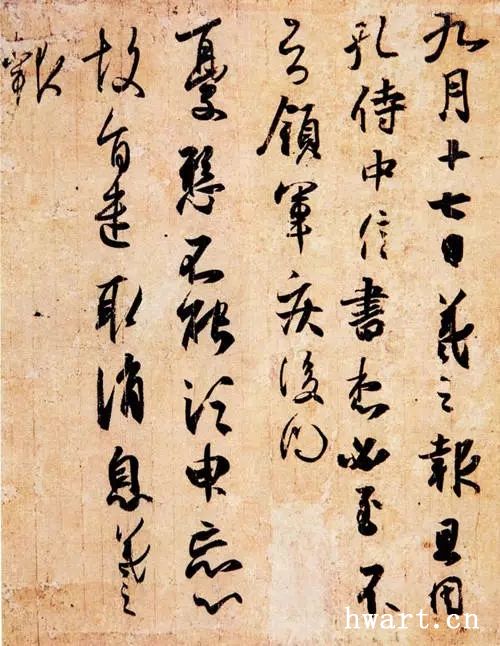 九月十七日羲之報且因
孔侍中信書想必至不
知領軍疾後問
憂懸不能須臾忘心
故旨遣取消息羲之
報
hwart.cn